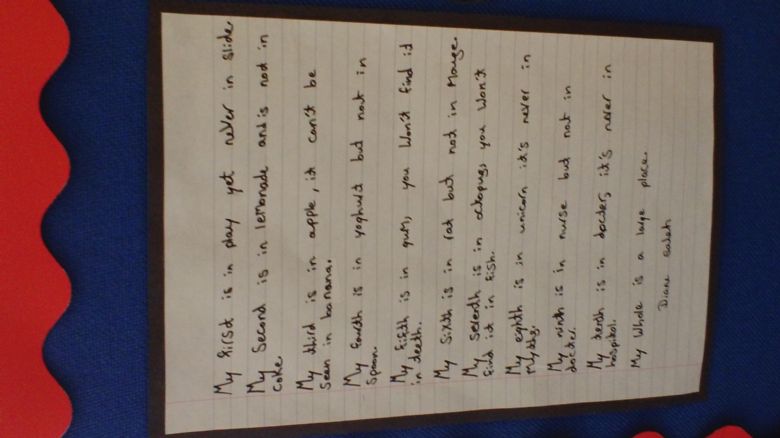 My first is in play yet never in slide.
My second is in lemonade and is not in
coke.
My third is in apple, it can't be
seen in banana.
My fourth is in yoghurt but not in
spoon.
My fifth is in gum, you won't find it
in teeth.
My sixth is in rat but not in Mouse.
My seventh is in octopus, you won't
find it in fish.
My eighth is in unicorn it's never in
My nineth is in nurse but not in
docter.
My tenth is in docter, it's never in
hospital.
My whole is a large place.
Diane